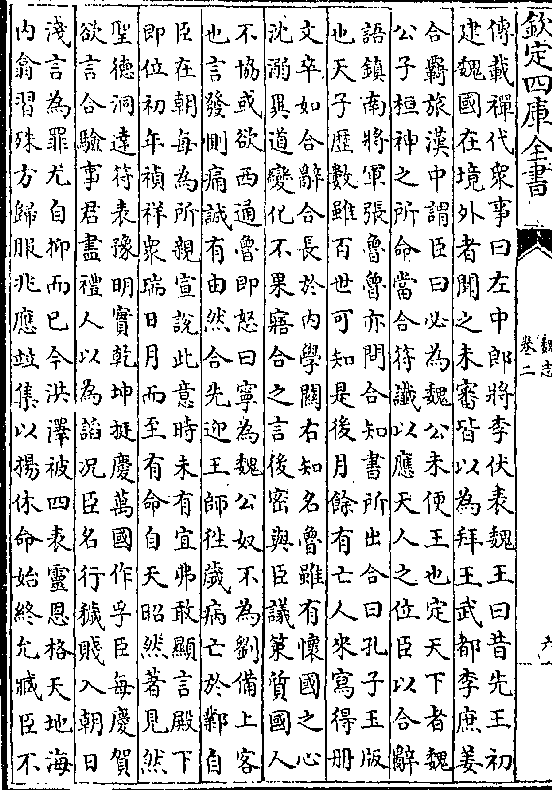 欽定四庫全書
魏志
卷二
九
傳載禪代衆事曰左中郎將李伏表魏王曰昔先王初
建魏國在境外者聞之未審皆以為拜王武都李庶姜
合羈旅漢中謂臣曰必為魏公未便王也定天下者魏
公子桓神之所命當合符讖以應天人之位臣以合辭
語鎮南將軍張魯魯亦問合知書所出合曰孔子玉版
也天子歷數雖百世可知是後月餘有亡人來寫得冊
文卒如合辭合長於內學關右知名魯雖有懷國之心
沈溺異道變化不果寤合之言後密與臣議策質國人
不協或欲西通魯即怒曰寧為魏公奴不為劉備上客
也言發惻痛誠有由然合先迎王師往歲病亡於鄴自
臣在朝每為所親宣說此意時未有宜弗敢顯言殿下
即位初年禎祥衆瑞日月而至有命自天昭然著見然
聖德洞達符表豫明實乾坤挺慶萬國作孚臣每慶賀
欲言合驗事君盡禮人以為諂況臣名行穢賤入朝日
淺言為罪尤自抑而已今洪澤被四表靈恩格天地海
內翕習殊方歸服兆應竝集以揚休命始終允臧臣不